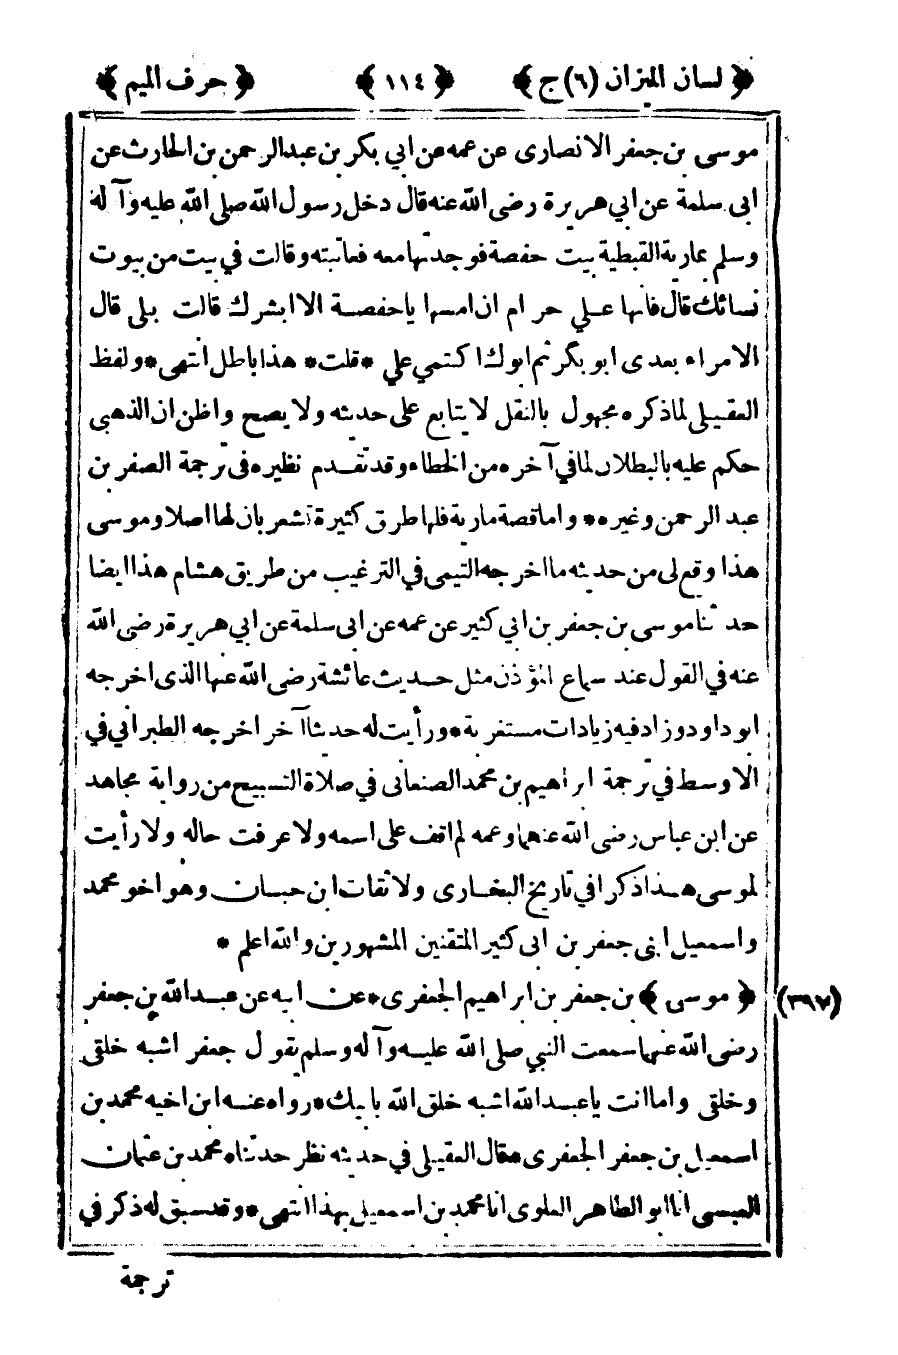 ﴿ لسان الميزان (٦) ج ﴾ ﴿ ١١٤ ﴾ ﴿ حرف الميم ﴾
موسى بن جعفر الانصارى عن عمه عن ابي بكر بن عبد الرحمن بن الحارث عن
ابى سلمة عن ابي هريرة رضى الله عنه قال دخل رسول الله صلى الله عليه وآله
وسلم بمارية القبطية بيت حفصة فوجدتها معه فعاتبته وقالت في بيت من بيوت
نسائك قال فانها علي حرام ان امسها يا حفصة الا ابشرك قالت بلى قال
الامراء بعدى ابو بكر ثم ابوك اكتمي علي * قلت * هذا باطل انتهى * ولفظ
العقيلى لما ذكره مجهول بالنقل لا يتابع على حديثه ولا يصح واظن ان الذهبى
حكم عليه بالبطلان لما في آخره من الخطاء وقد تقدم نظيره فى ترجمة الصقر بن
عبد الرحمن وغيره * واما قصة مارية فلها طرق كثيرة تشعر بان لها اصلا وموسى
هذا وقع لى من حديثه ما اخرجه التيمى في الترغيب من طريق هشام هذا ايضا
حدثنا موسى بن جعفر بن ابي كثير عن عمه عن ابى سلمة عن ابي هريرة رضى الله
عنه في القول عند سماع المؤذن مثل حديث عائشة رضى الله عنها الذى اخرجه
ابو داود وزاد فيه زيادات مستغربة * ورأيت له حديثا آخر اخرجه الطبراني في
الاوسط في ترجمة ابراهيم بن محمد الصنعانى في صلاة التسبيح من رواية مجاهد
عن ابن عباس رضى الله عنهما وعمه لم اقف على اسمه ولا عرفت حاله ولا رأيت
لموسى هذا ذكرا في تاريخ البخارى ولا ثقات ابن حبان وهو اخو محمد
واسمعيل ابنى جعفر بن ابى كثير المتقنين المشهورين والله اعلم *
(٣٩٧) ﴿ موسى ﴾ بن جعفر بن ابراهيم الجعفرى * عن ابيه عن عبد الله بن جعفر
رضى الله عنهما سمعت النبي صلى الله عليه وآله وسلم يقول جعفر اشبه خلقى
وخلقى واما انت يا عبد الله اشبه خلق الله بابيك * رواه عنه ابن اخيه محمد بن
اسمعيل بن جعفر الجعفرى * قال العقيلى في حديثه نظر حدثناه محمد بن عثمان
العبسى انا ابو الطاهر العلوى انا محمد بن اسمعيل بهذا انتهى * وقد سبق له ذكر في
ترجمة